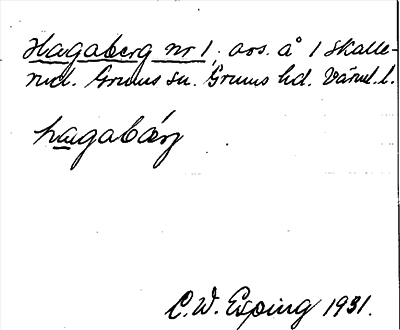 Hagaberg nr 1, avs. å 1 Skalle-
rud. Grums sn. Grums hd. Värml. l.
hagabärj
C. W. Esping 1931.